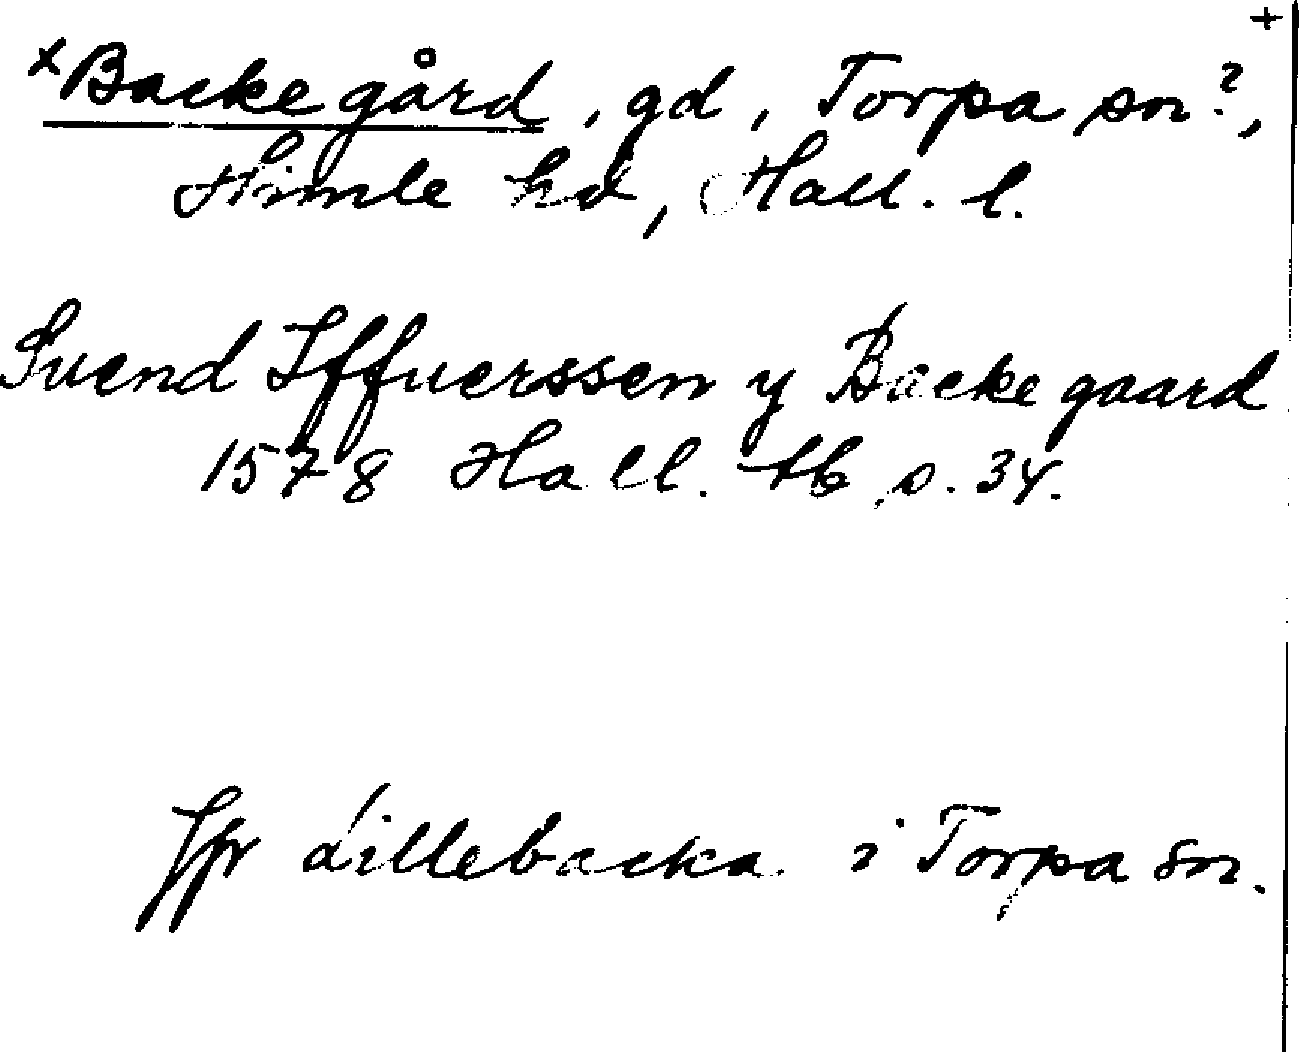 +
×Backegård, gd, Torpa sn?,
Himle hd, Hall. l.
Suend Iffuerssen y Backegaard
1578 Hall. tb, s. 34.
Jfr Lillebacka i Torpa sn.